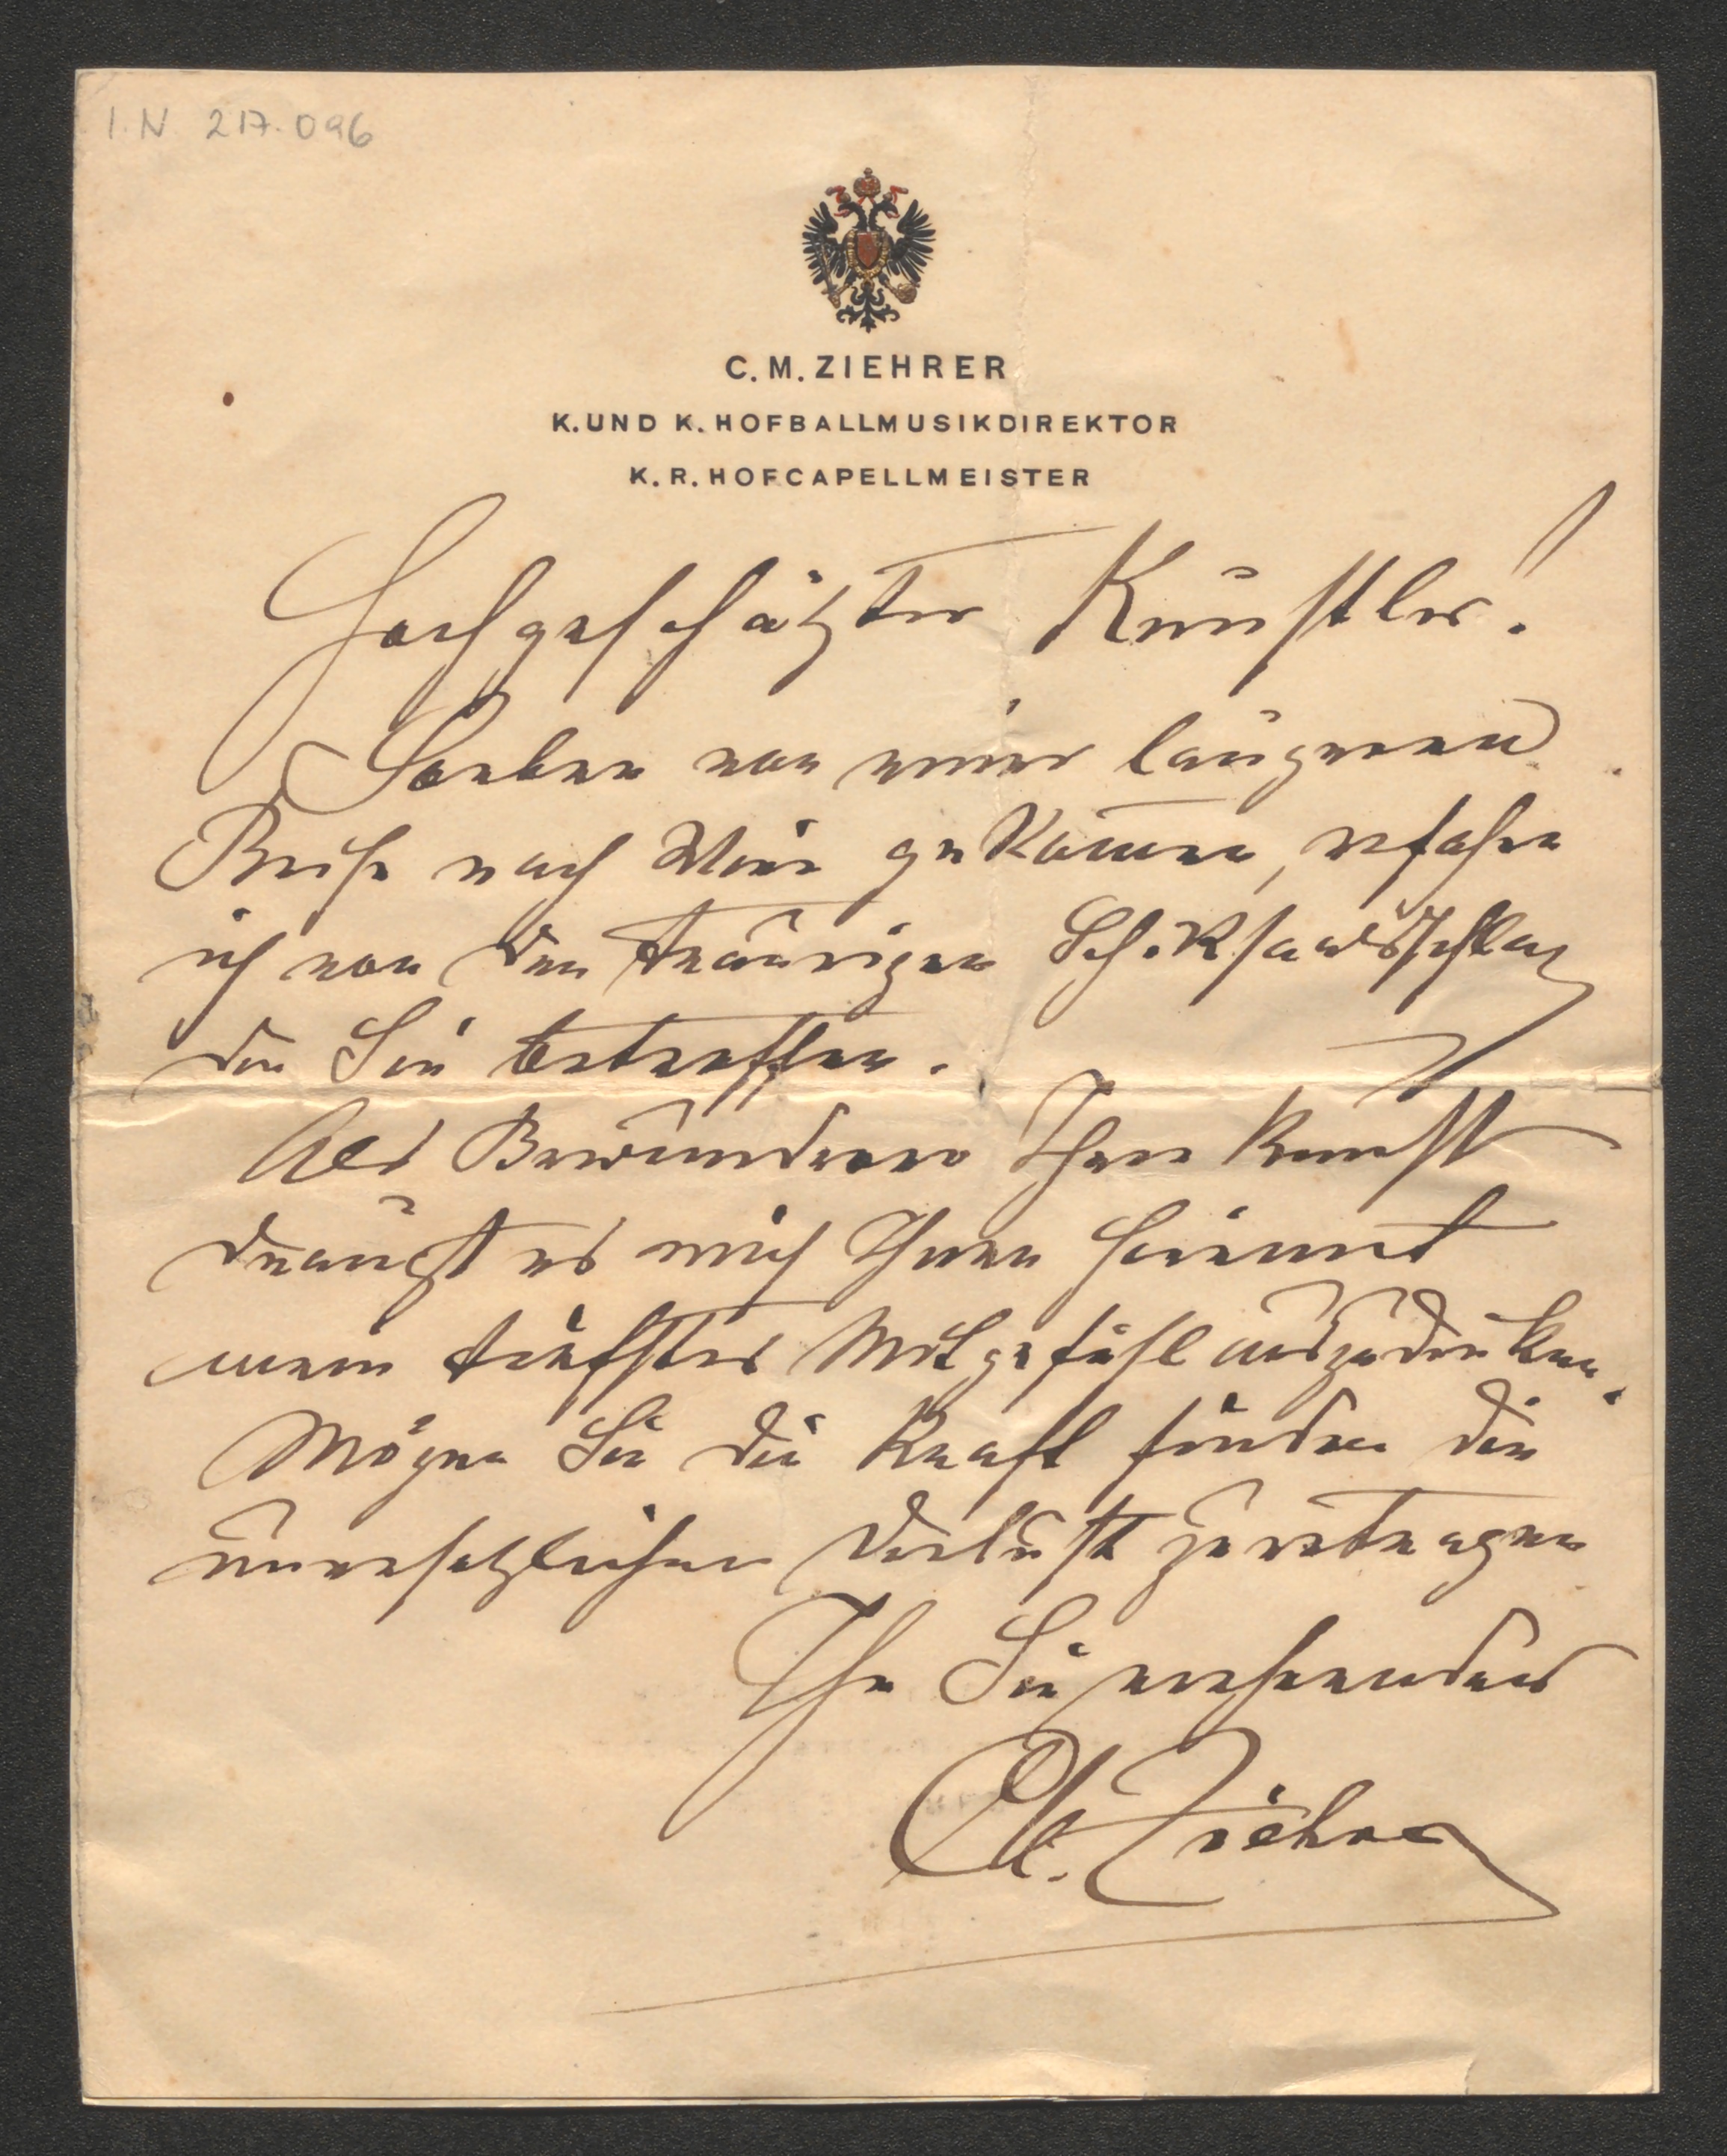 I.N. 217.096
C. M. ZIEHRER
K. UND K. HOFBALLMUSIKDIREKTOR
K. R. HOFCAPELLMEISTER
Hochgeschätzter Künstler!
Soeben von einer längeren
Reise nach Wien gekommen, erfahre
ich von dem traurigen Schiksalsschlag
der Sie betroffen.
Als Bewunderer Ihrer Kunst
drängt es mich Ihnen hiemit
mein tiefstes Mitgefühl auszudrüken.
Mögen Sie die Kraft finden den
unersetzlichen Verlust zu ertragen
Ihr Sie verehrender
CM. Ziehrer